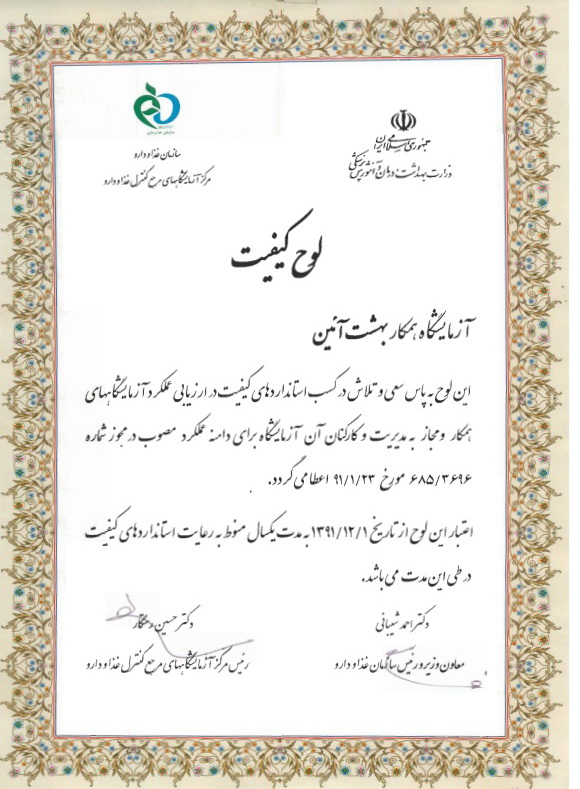 جمهوری اسلامی ایران
وزارت بهداشت درمان و آموزش پزشکی
سازمان غذا و دارو
مرکز آزمایشگاههای مرجع کنترل غذا و دارو
لوح کیفیت
آزمایشگاه همکار بهشت آئین
این لوح به پاس سعی و تلاش در کسب استانداردهای کیفیت در ارزیابی عملکرد آزمایشگاههای
همکار و مجاز به مدیریت و کارکنان آن آزمایشگاه برای دامنه عملکرد مصوب در مجوز شماره
۶۸۵/۳۶۹۶ مورخ ۹۱/۱/۲۳ اعطا می گردد.
اعتبار این لوح از تاریخ ۱۳۹۱/۱۲/۱ به مدت یکسال منوط به رعایت استانداردهای کیفیت
در طی این مدت می باشد.
دکتر احمد شیبانی
معاون وزیر و رئیس سازمان غذا و دارو
دکتر حسین رستگار
رئیس مرکز آزمایشگاههای مرجع کنترل غذا و دارو